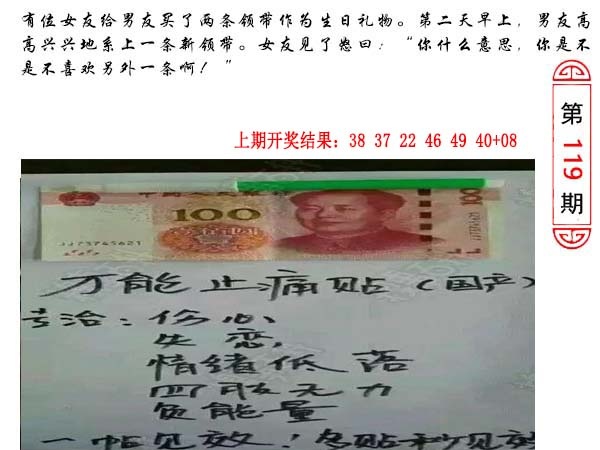 有位女友给男友买了两条领带作为生日礼物。第二天早上，男友高
高兴兴地系上一条新领带。女友见了怒曰：“你什么意思，你是不
是不喜欢另外一条啊！”
上期开奖结果：38 37 22 46 49 40+08
第
119
期
100
100
JJ73745621
万能止痛贴（国产）
专治：伤心、
失恋，
情绪低落
四肢无力
负能量
一帖见效！多贴秒见效